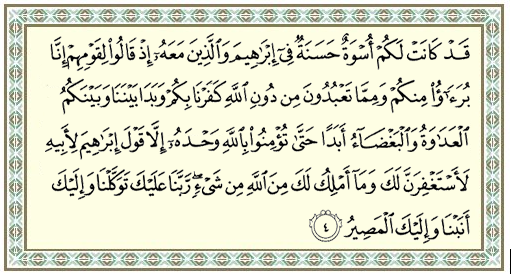 قَدْ كَانَتْ لَكُمْ أُسْوَةٌ حَسَنَةٌ فِىٓ إِبْرَٰهِيمَ وَٱلَّذِينَ مَعَهُۥٓ إِذْ قَالُوا۟ لِقَوْمِهِمْ إِنَّا
بُرَءَٰٓؤُا۟ مِنكُمْ وَمِمَّا تَعْبُدُونَ مِن دُونِ ٱللَّهِ كَفَرْنَا بِكُمْ وَبَدَا بَيْنَنَا وَبَيْنَكُمُ
ٱلْعَدَٰوَةُ وَٱلْبَغْضَآءُ أَبَدًا حَتَّىٰ تُؤْمِنُوا۟ بِٱللَّهِ وَحْدَهُۥٓ إِلَّا قَوْلَ إِبْرَٰهِيمَ لِأَبِيهِ
لَأَسْتَغْفِرَنَّ لَكَ وَمَآ أَمْلِكُ لَكَ مِنَ ٱللَّهِ مِن شَىْءٍ ۖ رَّبَّنَا عَلَيْكَ تَوَكَّلْنَا وَإِلَيْكَ
أَنَبْنَا وَإِلَيْكَ ٱلْمَصِيرُ ٤